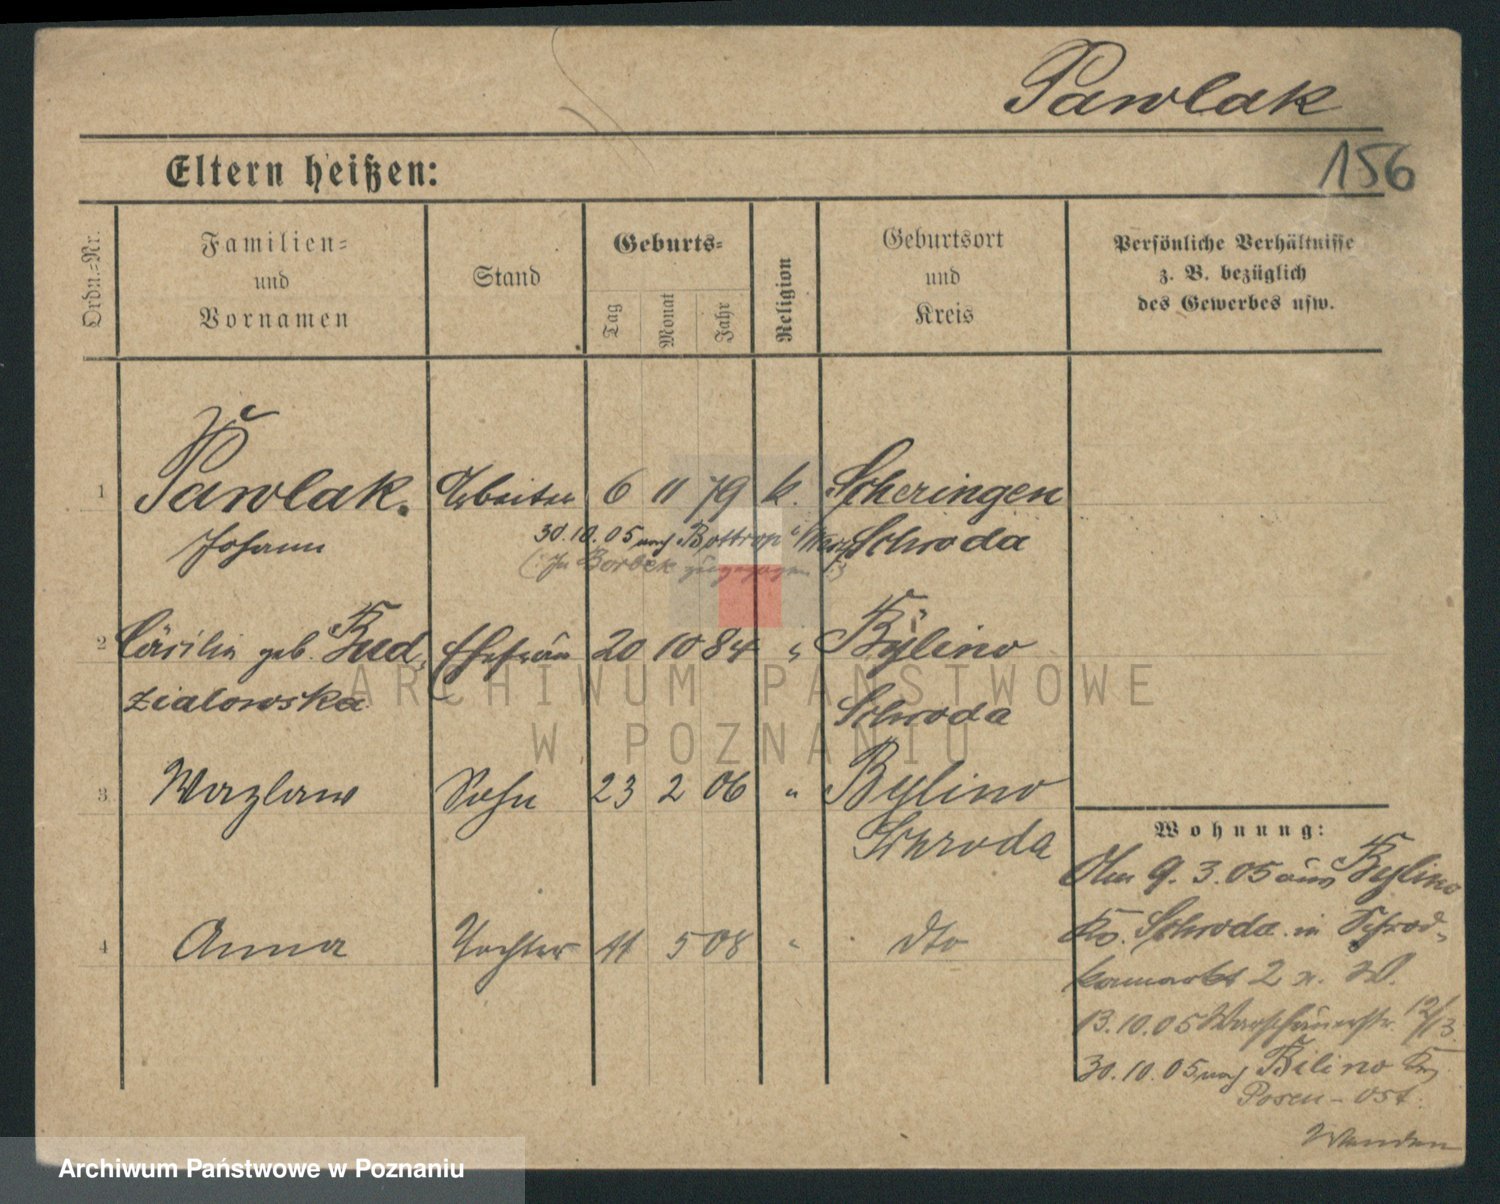 Pawlak
156
Eltern heißen:
Ordn.-Nr.
Familien-
und
Vornamen
Stand
Geburts-
Tag
Monat
Jahr
Religion
Geburtsort
und
Kreis
Persönliche Verhältnisse
z. B. bezüglich
des Gewerbes usw.
1 Pawlak. Arbeiter 6 11 79 k. Scheringen
Johann Schroda
30.10.05 nach Bottrop
(In Borbek zugezogen)
2 Cäsilia geb. Bud- Ehefrau 20 10 84 " Bÿlino
zialowska Schroda
3 Wazlaw Sohn 23 2 06 " Bylino
Schroda
4 Anna Tochter 11 5 08 " dto
Wohnung:
9.3.05 aus Bylino
Schroda in Schrod-
kamarkt 2
13.10.05 Warschauerstr. 12/13
30.10.05 nach Bilino
Posen-Ost.
ARCHIWUM PAŃSTWOWE
W POZNANIU
Archiwum Państwowe w Poznaniu